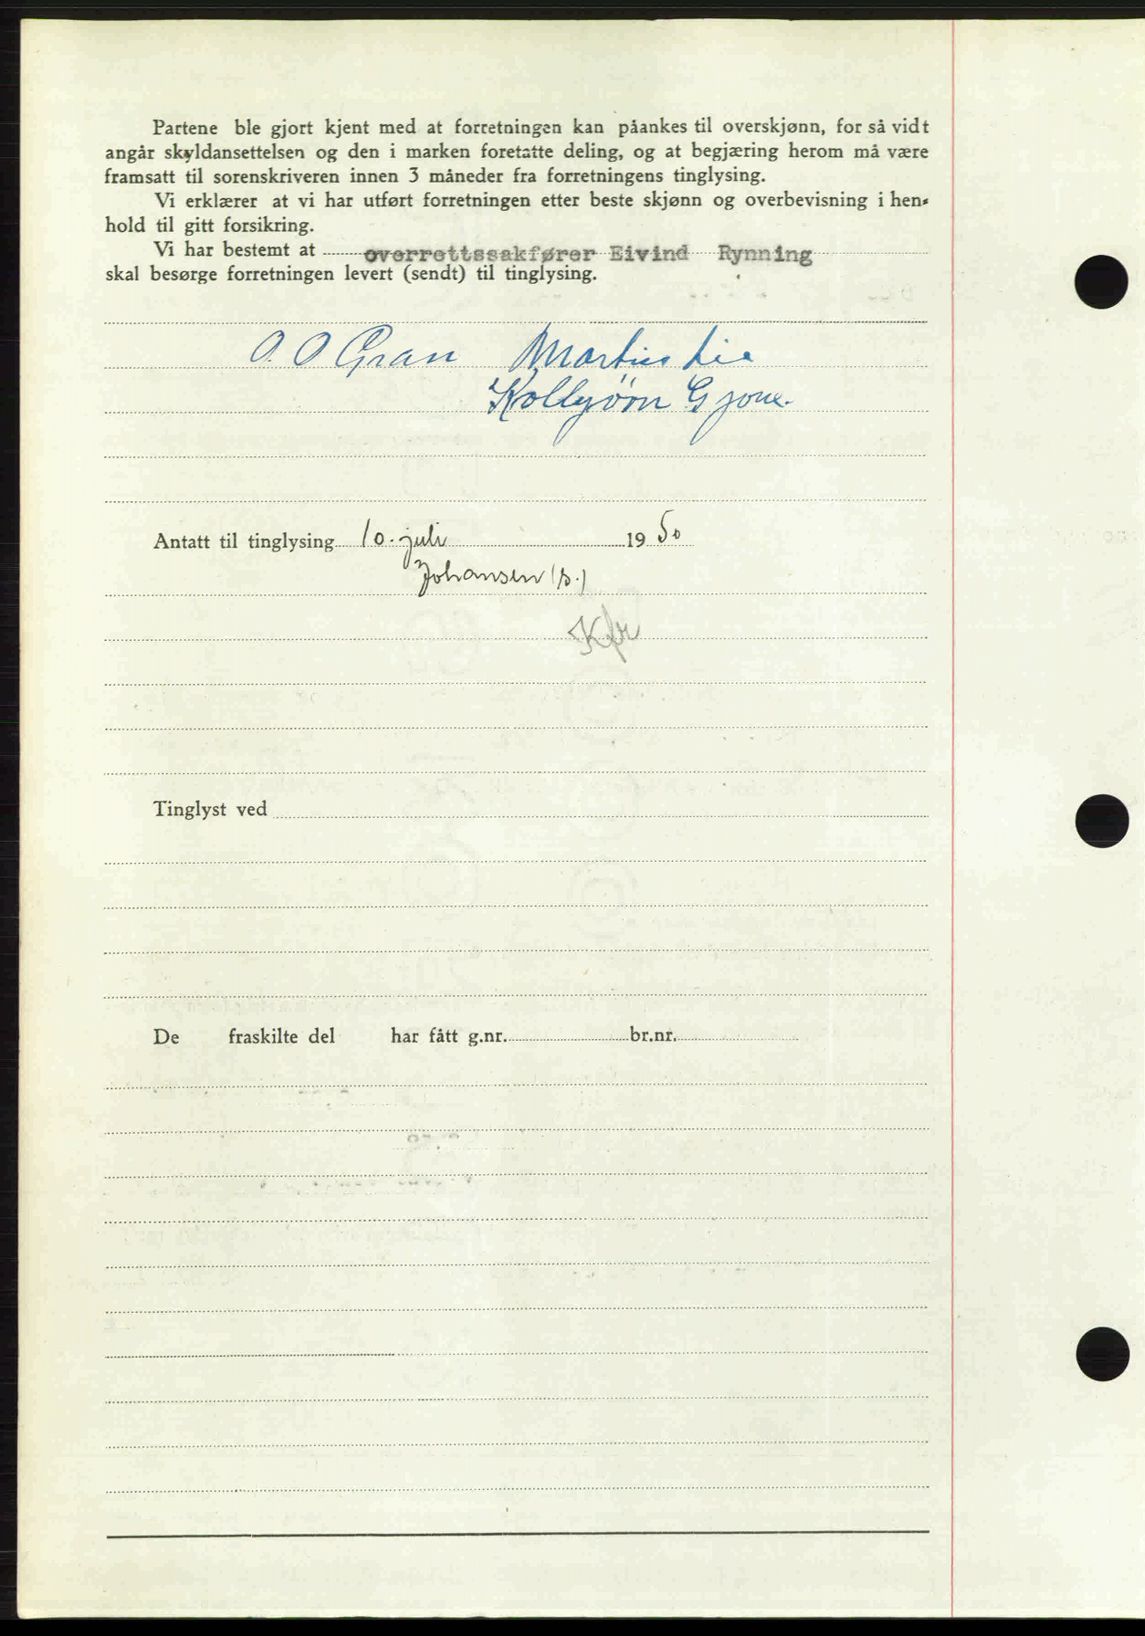 Partene ble gjort kjent med at forretningen kan påankes til overskjønn, for så vidt
angår skyldansettelsen og den i marken foretatte deling, og at begjæring herom må være
framsatt til sorenskriveren innen 3 måneder fra forretningens tinglysing.
Vi erklærer at vi har utført forretningen etter beste skjønn og overbevisning i hen-
hold til gitt forsikring.
Vi har bestemt at overrettssakfører Eivind Rynning
skal besørge forretningen levert (sendt) til tinglysing.
O. O Gran Martin Lie
Kolbjørn Gjone.
Antatt til tinglysing 10. juli 1950
Johansen (s.)
Kfr
Tinglyst ved
De fraskilte del har fått g.nr. br.nr.